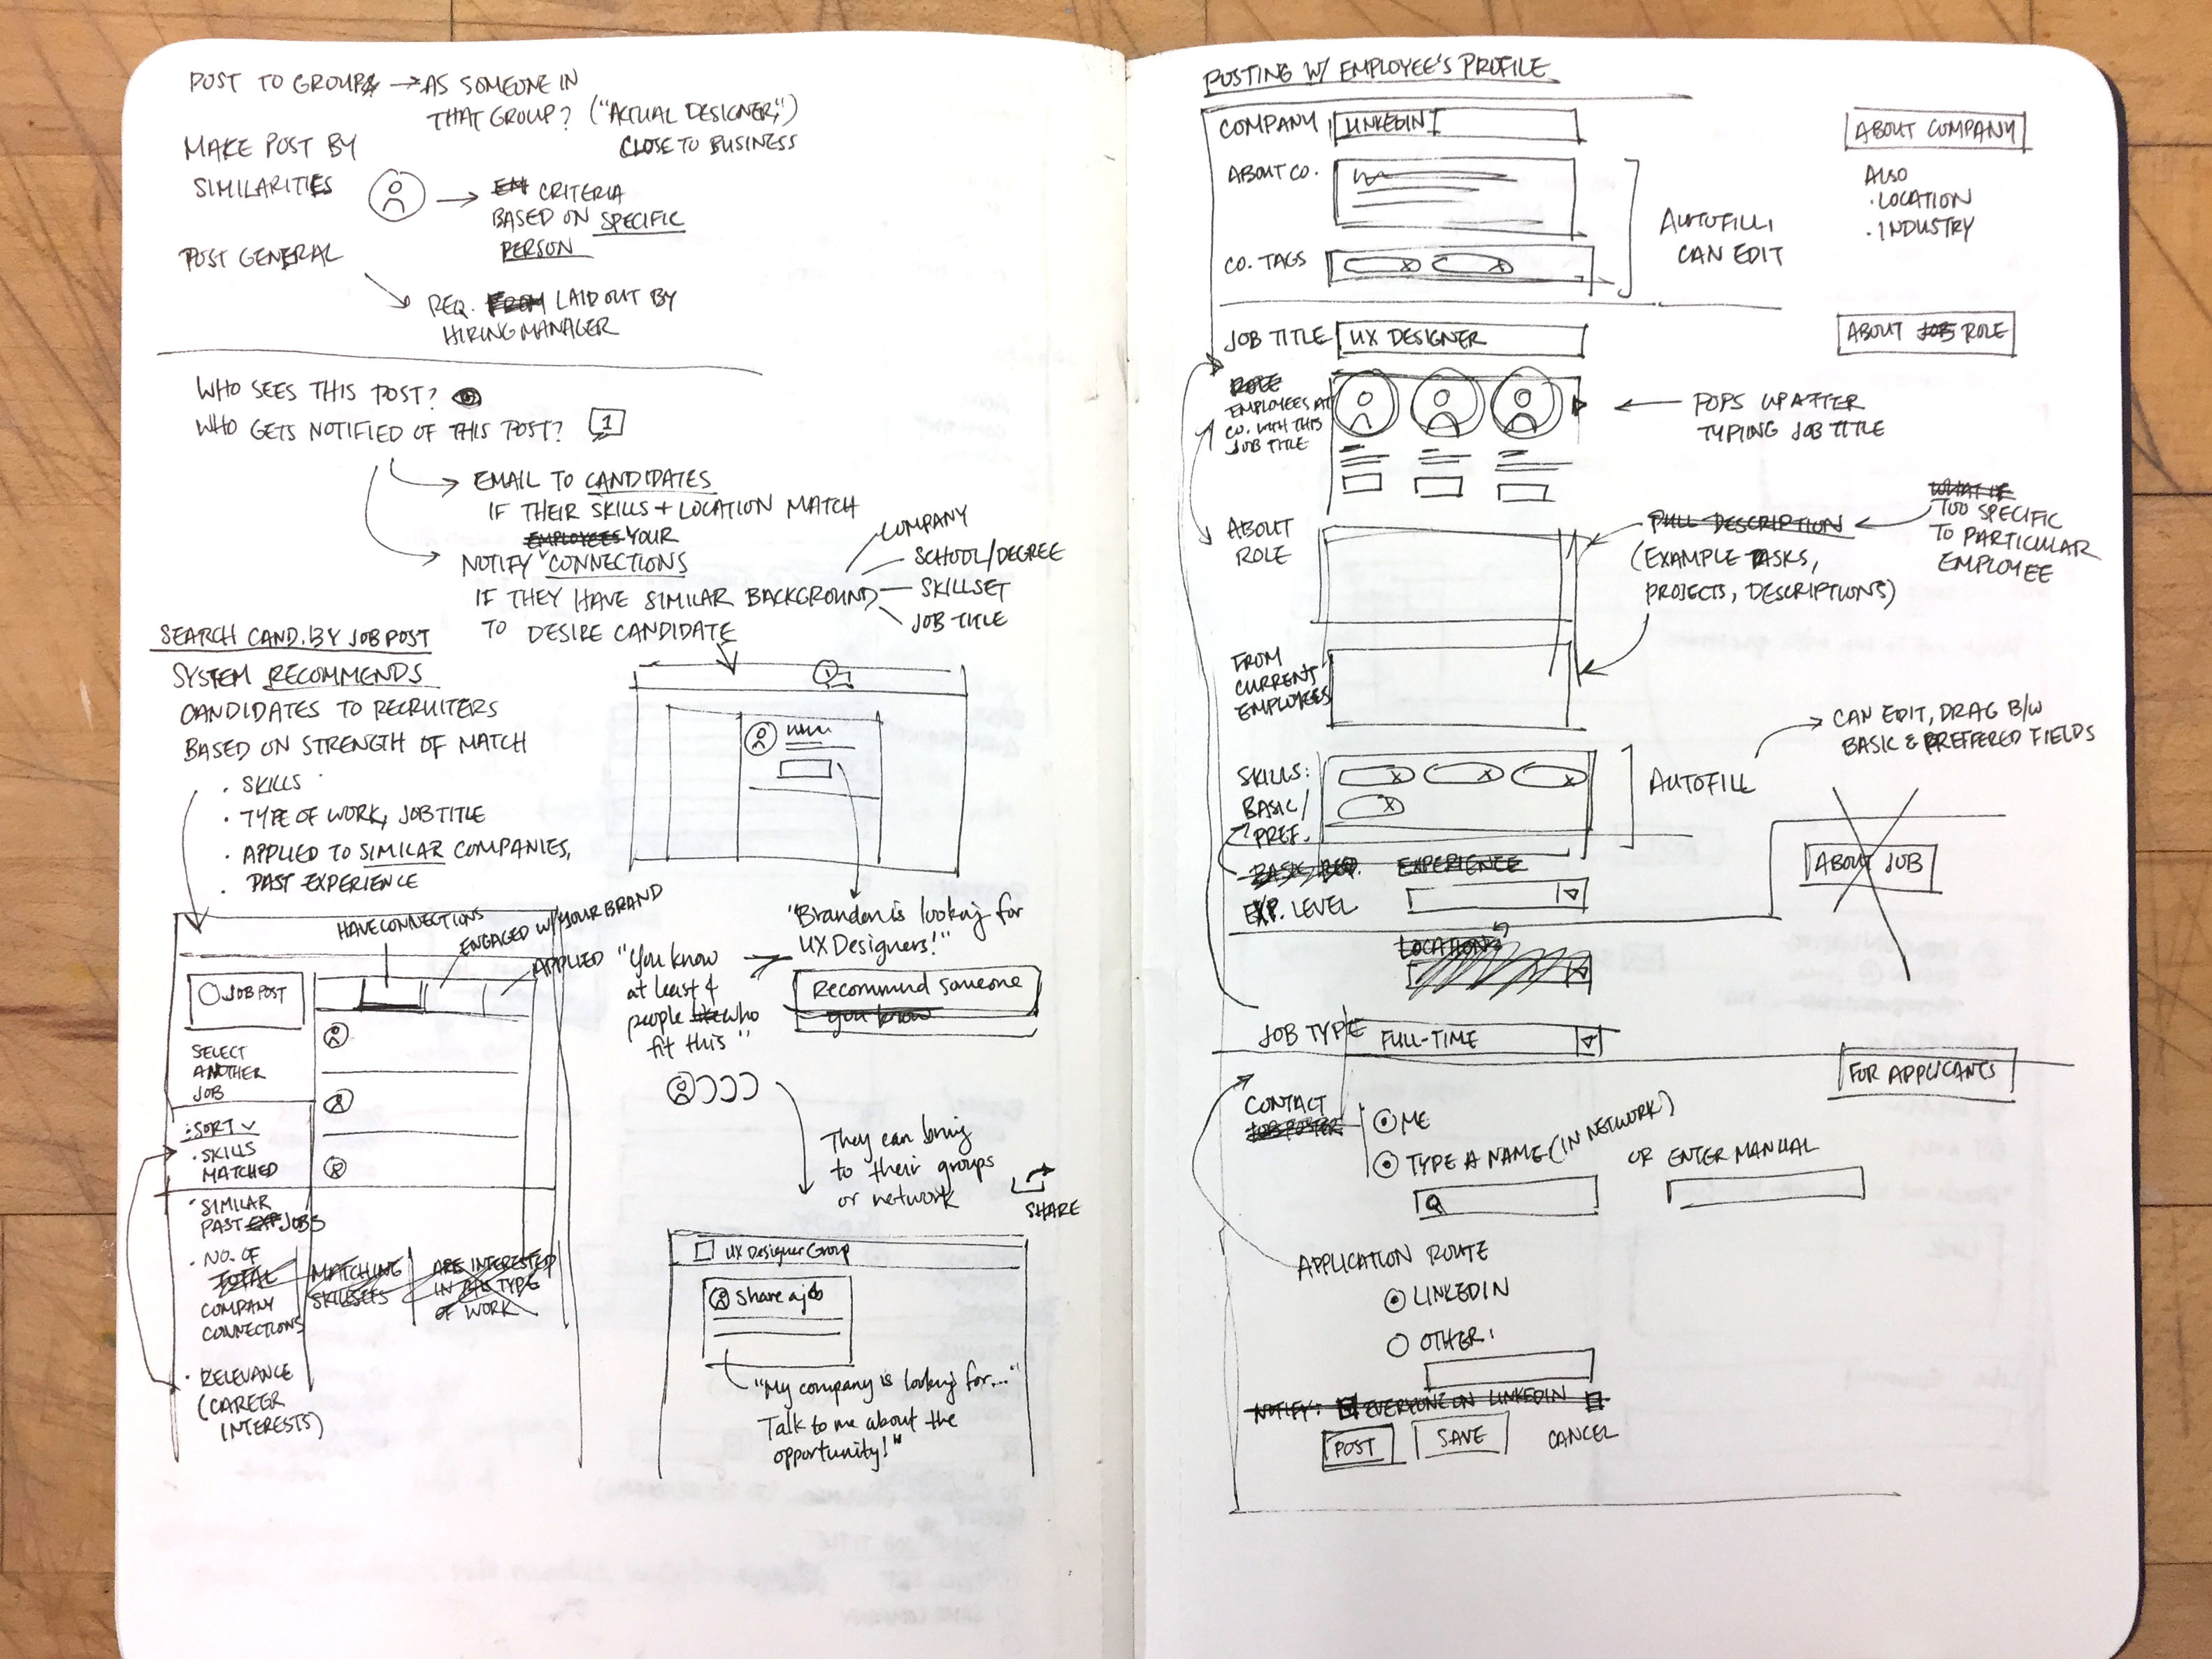 POST TO GROUPS → AS SOMEONE IN
THAT GROUP? ("ACTUAL DESIGNER,")
CLOSE TO BUSINESS
MAKE POST BY
SIMILARITIES
CRITERIA
BASED ON SPECIFIC
PERSON
POST GENERAL
REQ. FROM LAID OUT BY
HIRING MANAGER
WHO SEES THIS POST?
WHO GETS NOTIFIED OF THIS POST? 1
EMAIL TO CANDIDATES
IF THEIR SKILLS + LOCATION MATCH
EMPLOYEES YOUR
NOTIFY CONNECTIONS
IF THEY HAVE SIMILAR BACKGROUND
TO DESIRE CANDIDATE
COMPANY
SCHOOL/DEGREE
SKILLSET
JOB TITLE
SEARCH CAND. BY JOB POST
SYSTEM RECOMMENDS
CANDIDATES TO RECRUITERS
BASED ON STRENGTH OF MATCH
· SKILLS
· TYPE OF WORK, JOB TITLE
· APPLIED TO SIMILAR COMPANIES,
· PAST EXPERIENCE
HAVE CONNECTIONS
ENGAGED W/ YOUR BRAND
APPLIED
JOB POST
SELECT
ANOTHER
JOB
SORT
· SKILLS
MATCHED
· SIMILAR
PAST EXP. JOBS
· NO. OF
TOTAL
COMPANY
CONNECTIONS
MATCHING
SKILLSETS
ARE INTERESTED
IN THIS TYPE
OF WORK
· RELEVANCE
(CAREER
INTERESTS)
"You know
at least 4
people like who
fit this"
"Brandon is looking for
UX Designers!"
Recommend someone
you know
They can bring
to their groups
or network
SHARE
UX Designer Group
Share a job
"My company is looking for..."
Talk to me about the
opportunity!"
POSTING W/ EMPLOYEE'S PROFILE
COMPANY LINKEDIN
ABOUT CO.
CO. TAGS
AUTOFILL,
CAN EDIT
ABOUT COMPANY
ALSO
· LOCATION
· INDUSTRY
JOB TITLE UX DESIGNER
ABOUT JOB ROLE
ROLE
EMPLOYEES AT
CO. WITH THIS
JOB TITLE
POPS UP AFTER
TYPING JOB TITLE
ABOUT
ROLE
PULL DESCRIPTION
(EXAMPLE TASKS,
PROJECTS, DESCRIPTIONS)
WHAT IF
TOO SPECIFIC
TO PARTICULAR
EMPLOYEE
FROM
CURRENT
EMPLOYEES
CAN EDIT, DRAG B/W
BASIC & PREFFERED FIELDS
SKILLS:
BASIC/
PREF.
AUTOFILL
BASIC REQ. EXPERIENCE
EXP. LEVEL
ABOUT JOB
LOCATION
JOB TYPE FULL-TIME
FOR APPLICANTS
CONTACT
JOB POSTER
ME
TYPE A NAME (IN NETWORK)
OR ENTER MANUAL
APPLICATION ROUTE
LINKEDIN
OTHER:
NOTIFY: EVERYONE ON LINKEDIN
POST SAVE CANCEL